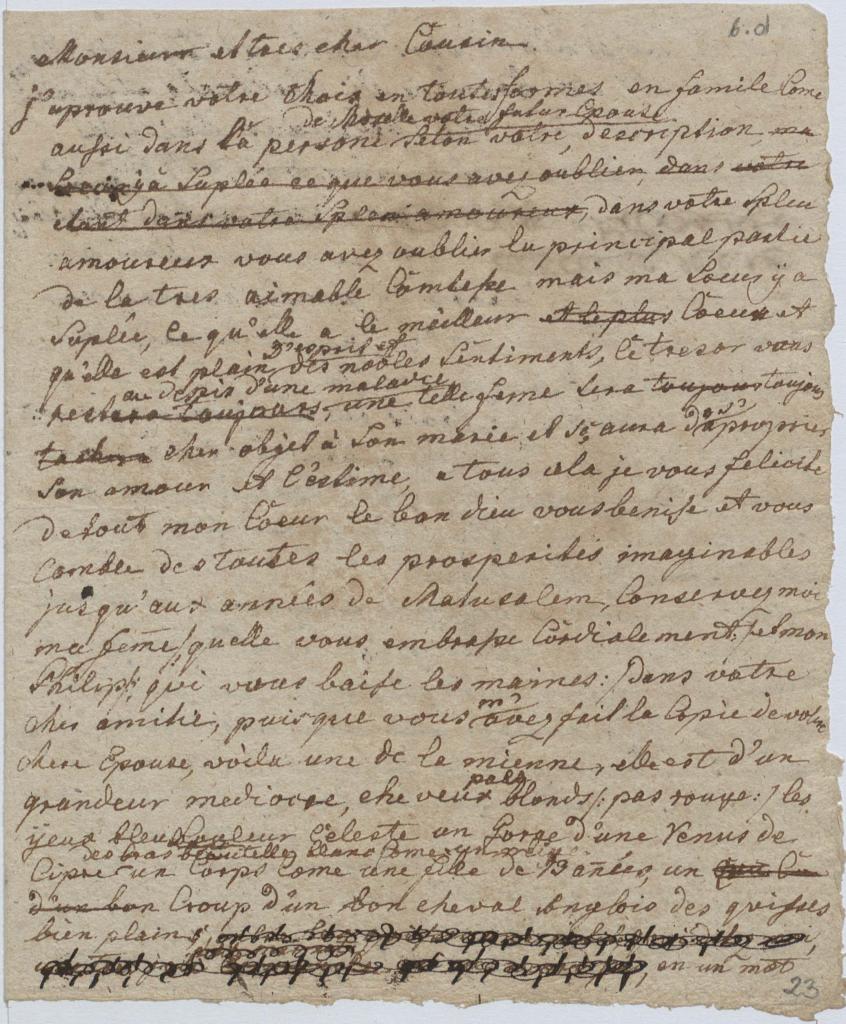 6.d
Monsieur et tres cher Cousin
j'aprouve votre choix en toutes formes en famille Come
de Madelle votre futur Epouse
aussi dans la persone selon votre description, ma
Soeur ya Suplée ce que vous avez oublien, dans votre
etant dans votre Spleen amoureux, dans votre Spleen
amoureux vous avez oublier la principal partie
de la tres aimable Comtesse mais ma Soeur y a
Suplée, Ce qu'elle a le meilleur et le plus Coeur et
d'esprit et
qu'elle est plain des nobles Sentiments, Ce tresor vous
au depis d'une malance
restera toujours, une telle feme sera toujours toujours
cher objet à Son marie et Sçaura d'aproprier
Son amour et l'estime, a tous cela je vous felicite
de tout mon Coeur le bon dieu vous benisse et vous
Comble des toutes les prosperités imaginables
jusqu'aux années de Matusalem, Conservez moi
ma feme /: quelle vous embrasse Cordialement :/ et mon
Philip /: qui vous baise les maines :/ dans votre
cher amitie, puisque vous m'avez fait la Copie de votre
chere Epouse, voila une de la mienne, elle est d'un
pale
grandeur mediocre, cheveux blonds /: pas rouge :/ les
yeux bleu Couleur Celeste un Gorge d'une Venus de
des bras blanc Come
Cipre un Corps Come une fille de 13 années, un
d'un bon Croup d'un bon cheval Anglois des quisses
bien plain
, en un mot
23